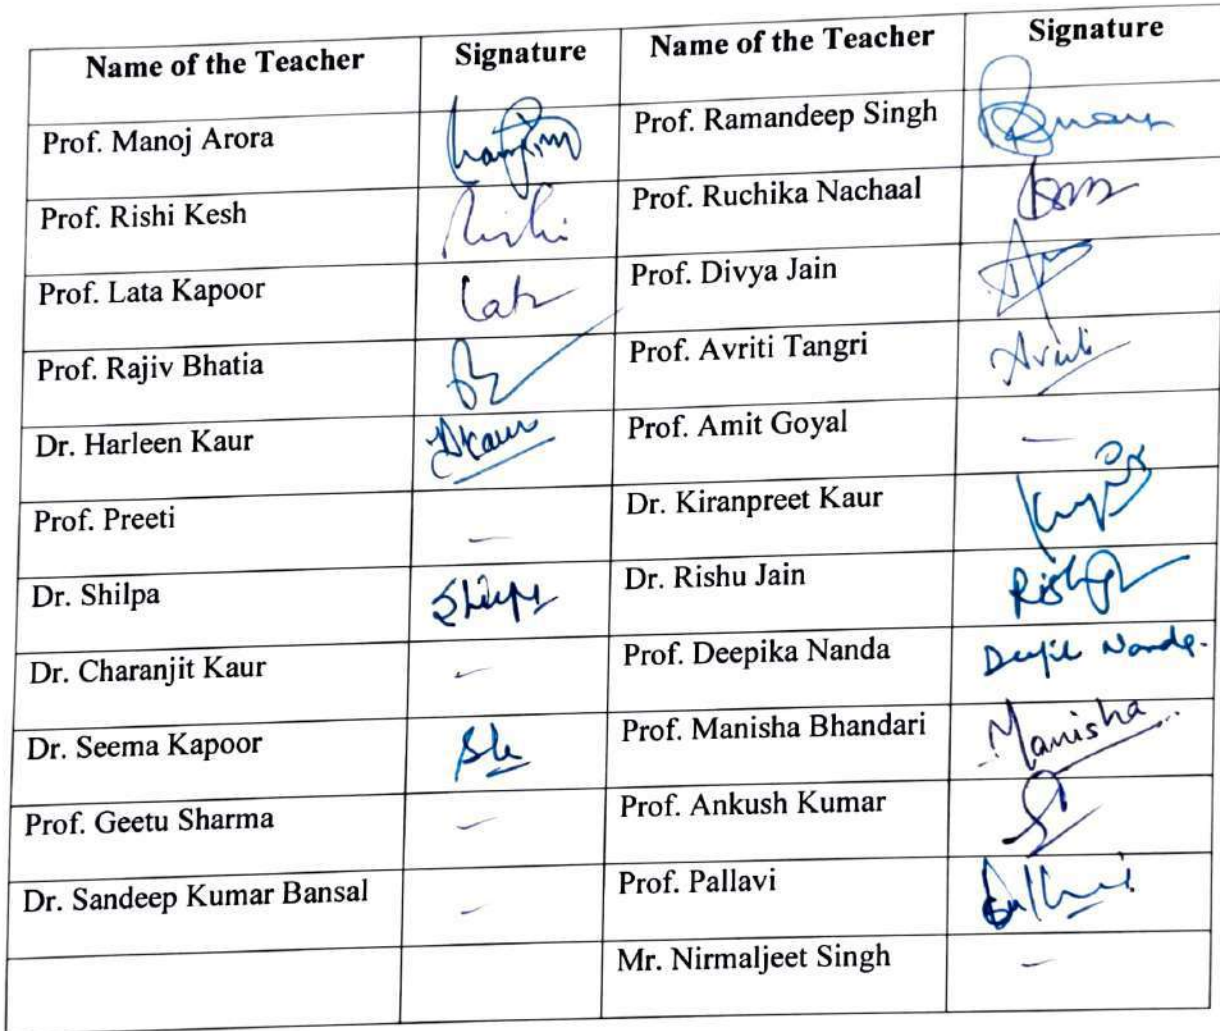 Name of the Teacher Signature Name of the Teacher Signature
Prof. Manoj Arora Prof. Ramandeep Singh
Prof. Rishi Kesh Rishi Prof. Ruchika Nachaal
Prof. Lata Kapoor Lata Prof. Divya Jain
Prof. Rajiv Bhatia Prof. Avriti Tangri Avriti
Dr. Harleen Kaur HKaur Prof. Amit Goyal —
Prof. Preeti — Dr. Kiranpreet Kaur
Dr. Shilpa Shilpa Dr. Rishu Jain
Dr. Charanjit Kaur — Prof. Deepika Nanda
Dr. Seema Kapoor Prof. Manisha Bhandari Manisha
Prof. Geetu Sharma — Prof. Ankush Kumar
Dr. Sandeep Kumar Bansal — Prof. Pallavi
Mr. Nirmaljeet Singh —